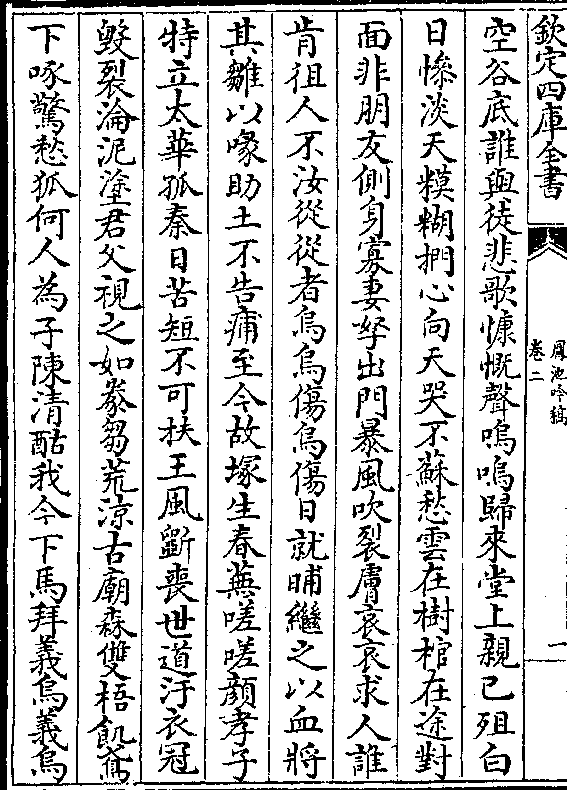 欽定四庫全書
鳳池吟稿
卷二
一
空谷底誰與徒悲歌慷慨聲嗚嗚歸來堂上親已殂白
日慘淡天糢糊捫心向天哭不蘇愁雲在樹棺在途對
面非朋友側身寡妻孥出門暴風吹裂膚哀哀求人誰
肯徂人不汝從從者烏烏傷烏傷日就晡繼之以血將
其雛以喙助土不告痡至今故塚生春蕪嗟嗟顔孝子
特立太華孤秦日苦短不可扶王風斷喪世道汙衣冠
毁裂淪泥塗君父視之如豢芻荒涼古廟森雙梧飢鳶
下啄驚愁狐何人為子陳清酤我今下馬拜義烏義烏